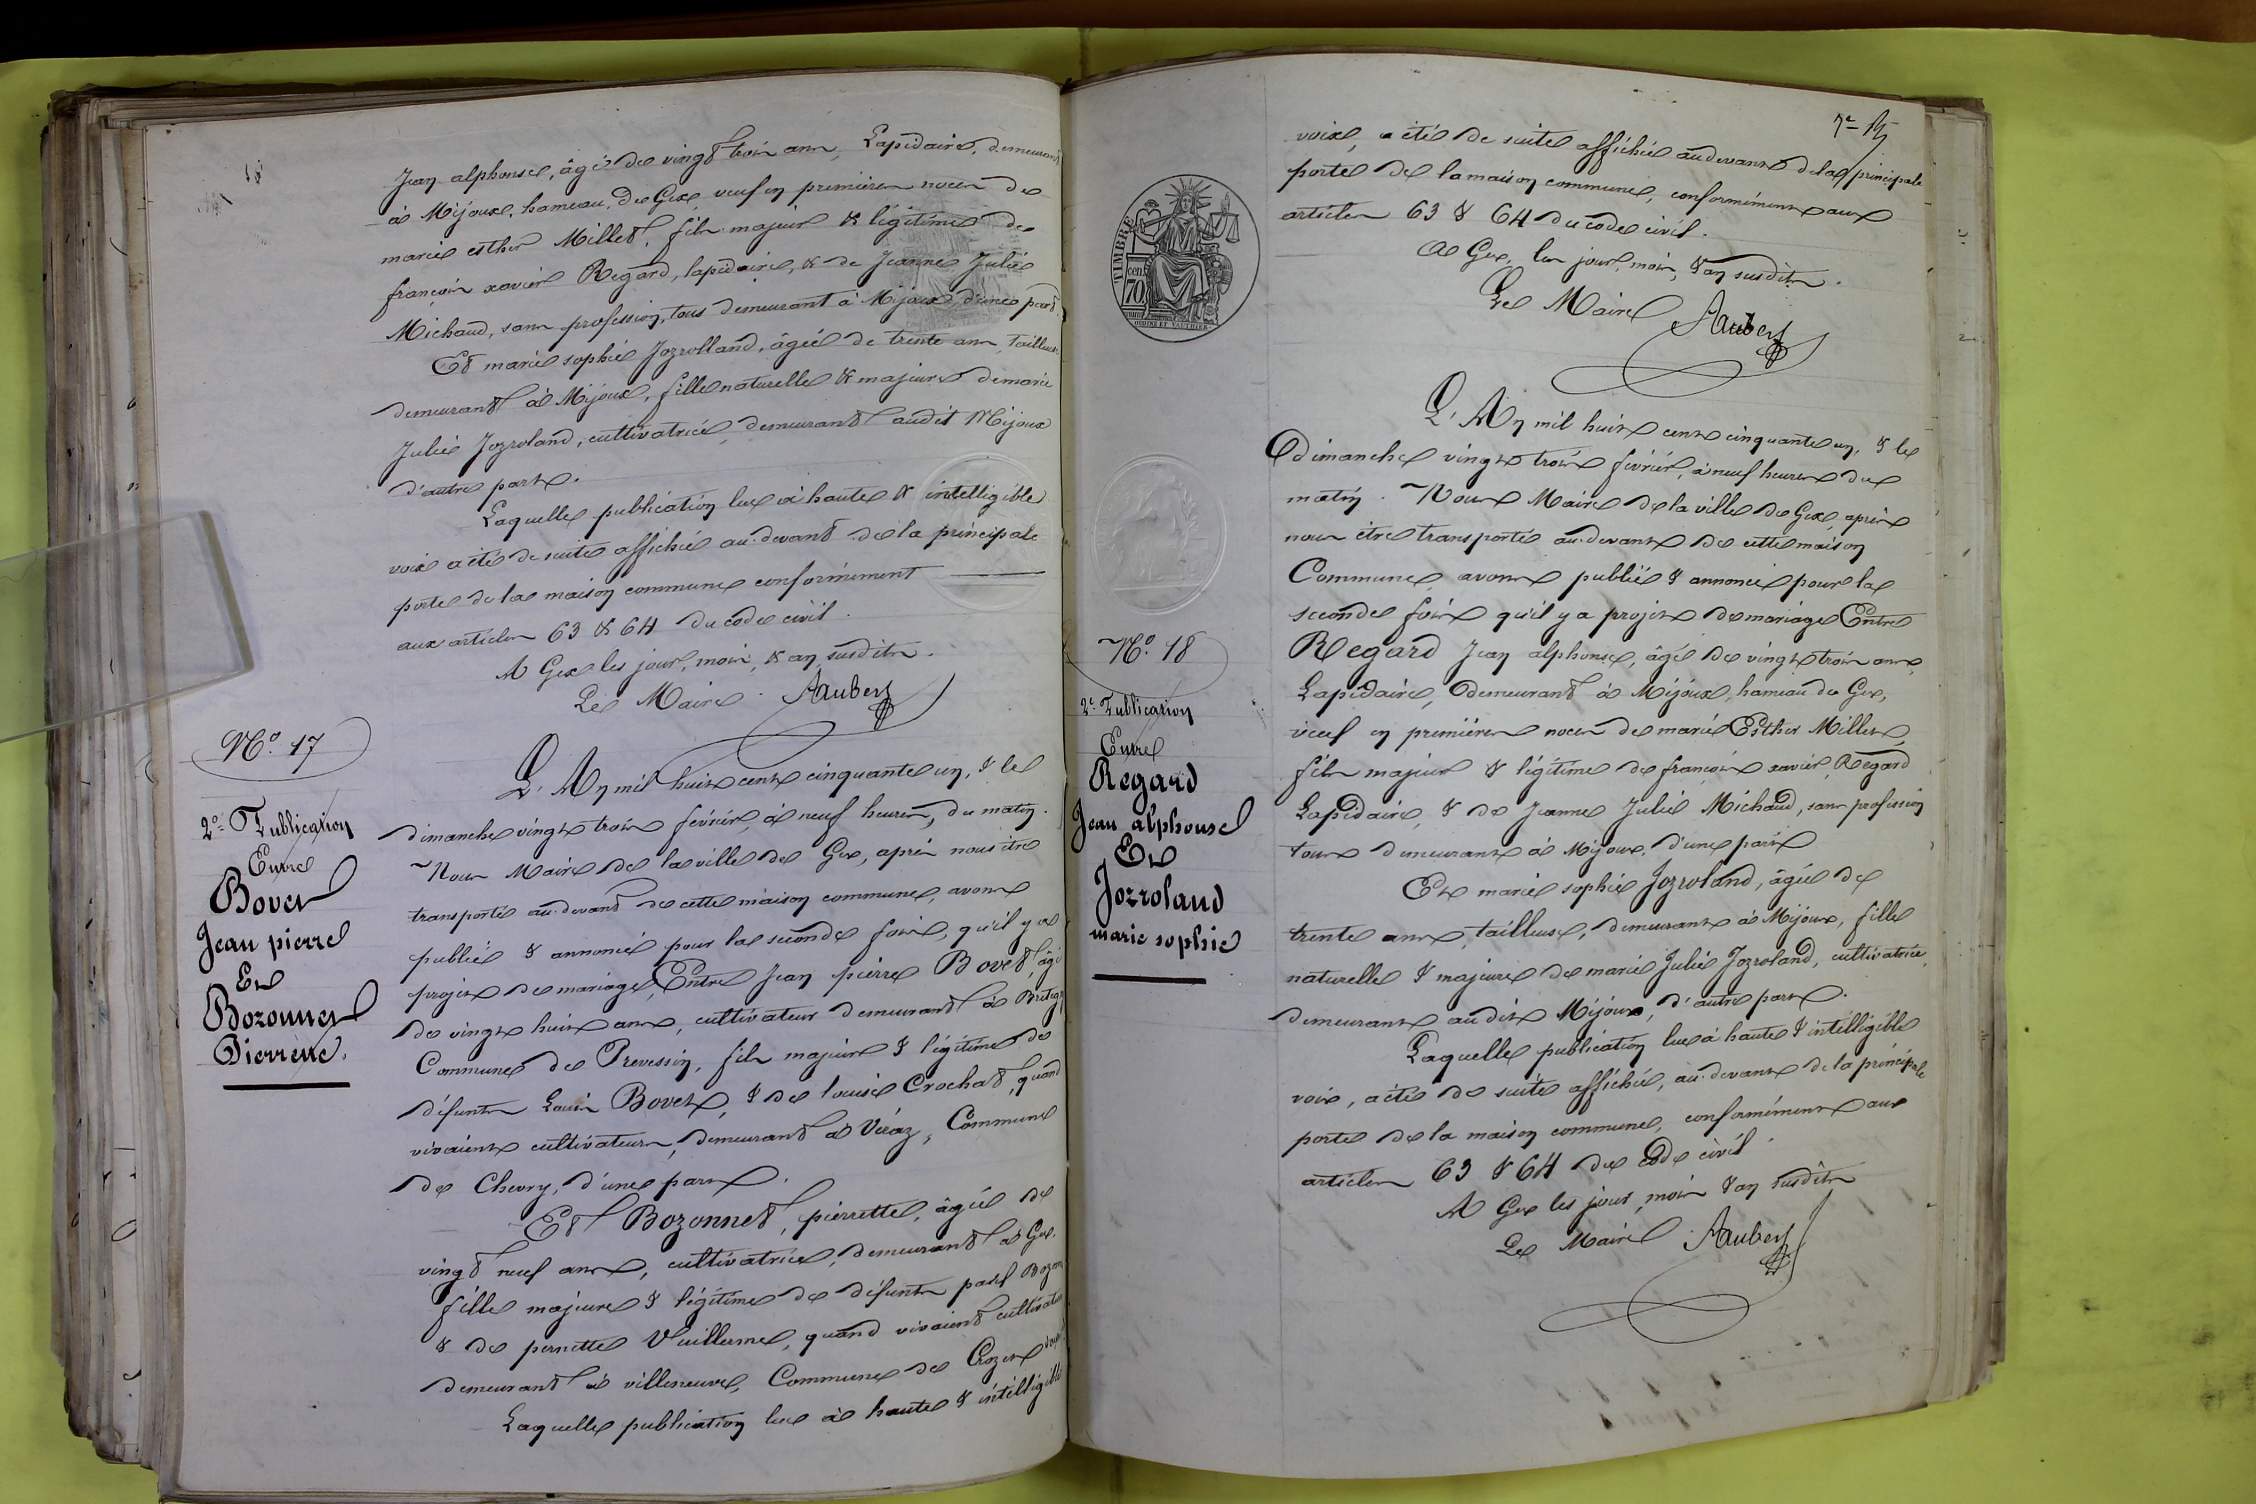 Jean alphonse, âgé de vingt trois ans, Lapidaire, demeurant
à Mijoux, hameau, de Gex, veuf en premières noces de
marie esther Millet, fils majeur & légitime de
françois xavier Regard, lapidaire, & de Jeanne Julie
Michaud, sans profession, tous demeurant à Mijoux, d'une part
Et marie sophie Jozrolland, âgée de trente ans, tailleuse
demeurant à Mijoux, fille naturelle & majeure de marie
Julie Jozroland, cultivatrice, demeurant audit Mijoux
d'autre part.
Laquelle publication lue à haute & intelligible
voix a été de suite affichée au-devant de la principale
porte de la maison commune conformément
aux articles 63 & 64 du code civil.
A Gex les jour, mois, & an susdits.
Le Maire. Aubert
No. 17
2e Publication
Entre
Bovet
Jean pierre
Et
Bozonnet
Pierrette.
L'An mil huit cent cinquante un, & le
dimanche vingt trois février, à neuf heures, du matin.
Nous Maire de la ville de Gex, après nous être
transporté au-devant de cette maison commune, avons
publié & annoncé pour la seconde fois, qu'il y a
projet de mariage, Entre Jean pierre Bovet, âgé
de vingt huit ans, cultivateur demeurant à Bretigny
Commune de Prevessin, fils majeur & légitime de
défunts Louis Bovet, & de louise Crochat, quand
vivaient cultivateurs, demeurant à Véraz, Commune
de Chevry, d'une part.
Et Bozonnet, pierrette, âgée de
vingt neuf ans, cultivatrice, demeurant à Gex.
fille majeure & légitime de défunts paul Bozon
& de pernette Vuillerme, quand vivaient cultivateurs
demeurant à villeneuve, Commune de Crozet
Laquelle publication lue à haute & intelligible
7e
voix, a été de suite affichée au devant de la principale
porte de la maison commune, conformément aux
articles 63 & 64 du code civil.
A Gex, les jour, mois, & an susdits.
Le Maire Aubert
TIMBRE
70 cen.
No. 18
2e Publication
Entre
Regard
Jean alphonse
Et
Jozroland
marie sophie
L'An mil huit cent cinquante un, & le
dimanche vingt trois février, à neuf heures du
matin. Nous Maire de la ville de Gex, après
nous être transporté au-devant de cette maison
Commune, avons publié & annoncé pour la
seconde fois qu'il y a projet de mariage Entre
Regard Jean alphonse, âgé de vingt trois ans,
Lapidaire, demeurant à Mijoux, hameau de Gex,
veuf en premières noces de marie Esther Millet,
fils majeur & légitime de françois xavier, Regard
Lapidaire, & de Jeanne Julie Michaud, sans profession
tous demeurant à Mijoux, d'une part
Et marie sophie Jozroland, âgée de
trente ans, tailleuse, demeurant à Mijoux, fille
naturelle & majeure de marie Julie Jozroland, cultivatrice,
demeurant audit Mijoux, d'autre part.
Laquelle publication lue à haute & intelligible
voix, a été de suite affichée, au-devant de la principale
porte de la maison commune, conformément aux
articles 63 & 64 du code civil.
A Gex les jour, mois & an susdits
Le Maire Aubert